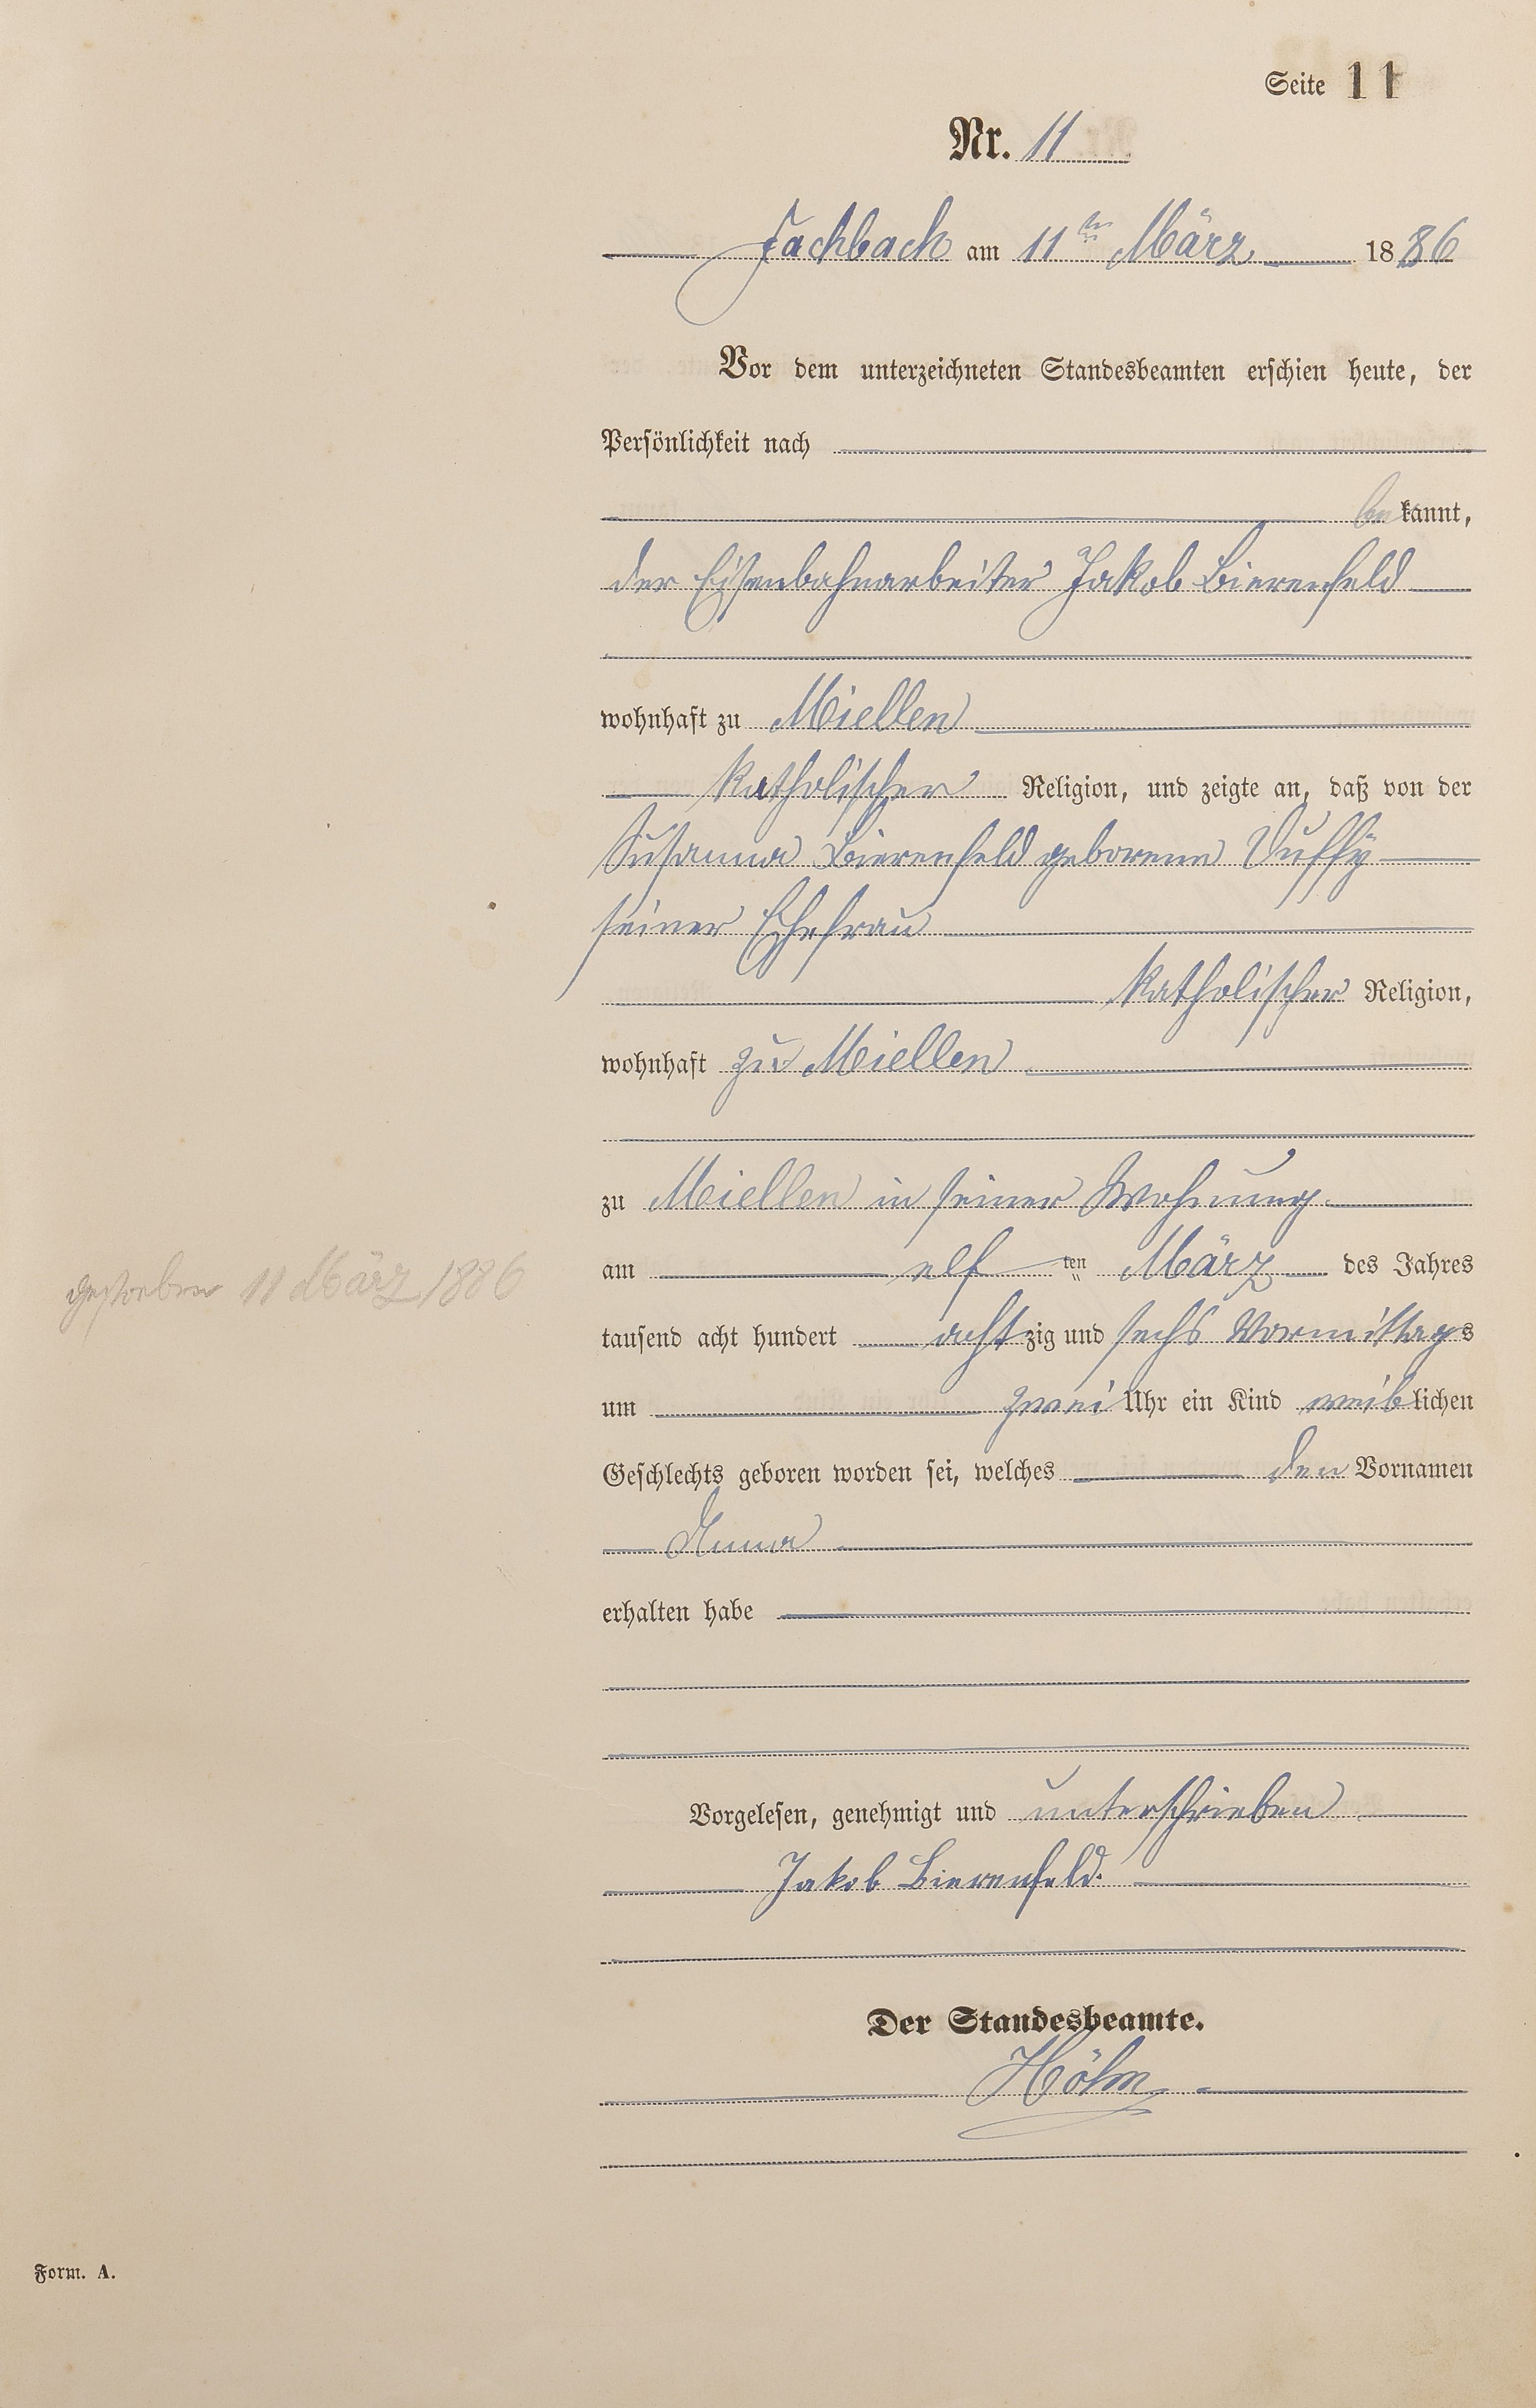 Seite 11
Nr. 11
Fachbach am 11ten März 1886
Vor dem unterzeichneten Standesbeamten erschien heute, der
Persönlichkeit nach
bekannt,
der Eisenbahnarbeiter Jakob Bierenfeld
wohnhaft zu Miellen
katholischer Religion, und zeigte an, daß von der
Susanna Bierenfeld geborene
seiner Ehefrau
katholischer Religion,
wohnhaft zu Miellen
zu Miellen in seiner Wohnung
am elften März des Jahres
gestorben 11 März 1886
tausend acht hundert achtzig und sechs Vormittags
um zwei Uhr ein Kind weiblichen
Geschlechts geboren worden sei, welches den Vornamen
Anna
erhalten habe
Vorgelesen, genehmigt und unterschrieben
Jakob Bierenfeld.
Der Standesbeamte.
Höhn
Form. A.